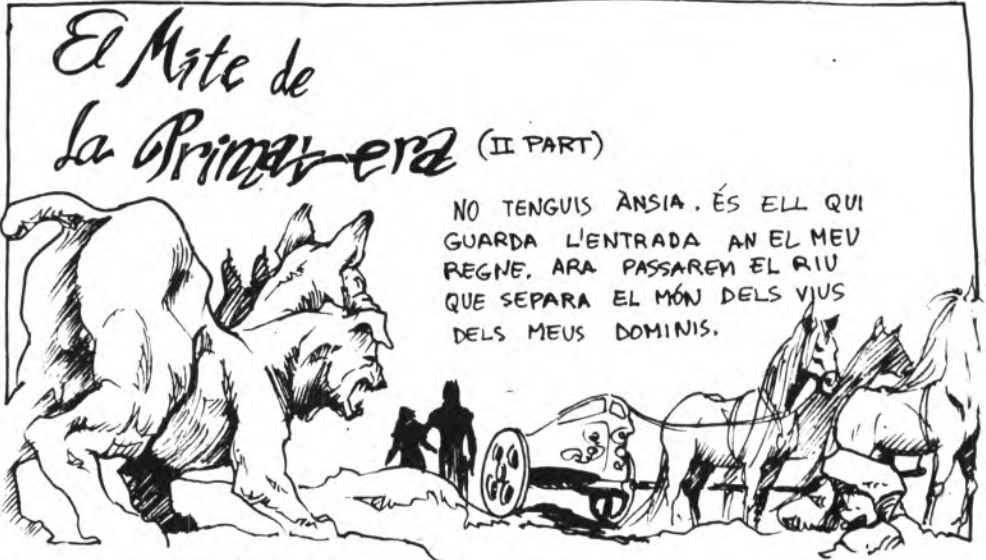 El Mite de
La Primavera (II PART)
NO TENGUIS ÀNSIA. ÉS ELL QUI
GUARDA L'ENTRADA AN EL MEU
REGNE. ARA PASSAREM EL RIU
QUE SEPARA EL MÓN DELS VIUS
DELS MEUS DOMINIS.